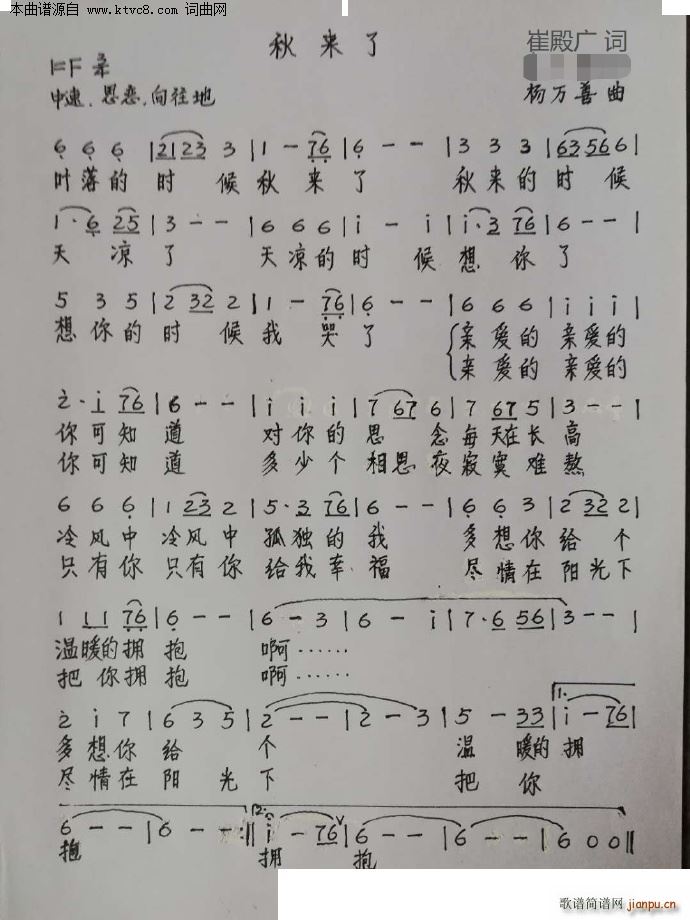 本曲谱源自 www.ktvc8.com 词曲网
秋来了
崔殿广 词
1=F 3/4
中速、思恋、向往地
杨万善 曲
6 6 6 | 21 23 3 | 1 - 76 | 6 - - | 3 3 3 | 63 56 6 |
叶落的 时 候 秋 来 了 秋来的 时 候
1· 6 25 | 3 - - | 6 6 6 | i - i | i· 3 76 | 6 - - |
天 凉 了 天凉的 时 候 想 你 了
5 3 5 | 2 32 2 | 1 - 76 | 6 - - | 6 6 6 | i i i |
想你的 时 候 我 哭 了 亲爱的 亲爱的
亲爱的 亲爱的
2· i 76 | 6 - - | i i i | 7 67 6 | 7 67 5 | 3 - - |
你可知 道 对你的 思 念 每天在长 高
你可知 道 多少个 相思夜 寂寞难 熬
6 6 6 | 1 23 2 | 5· 3 76 | 6 - - | 6 6 3 | 2 32 2 |
冷风中 冷风中 孤独的 我 多想你 给 个
只有你 只有你 给我幸 福 尽情在 阳光下
1 1 1 76 | 6 - - | 6 - 3 | 6 - i | 7· 6 56 | 3 - - |
温暖的拥 抱 啊……
把你拥 抱 啊……
2 i 7 | 6 3 5 | 2 - - | 2 - 3 | 5 - 33 | 1. i - 76 |
多想你 给 个 温 暖的 拥
尽情在 阳 光 下 把 你
6 - - | 6 - - :|| 2. i - 76 V | 6 - - | 6 - - | 6 0 0 ||
抱 拥 抱
歌谱简谱网
jianpu.cn